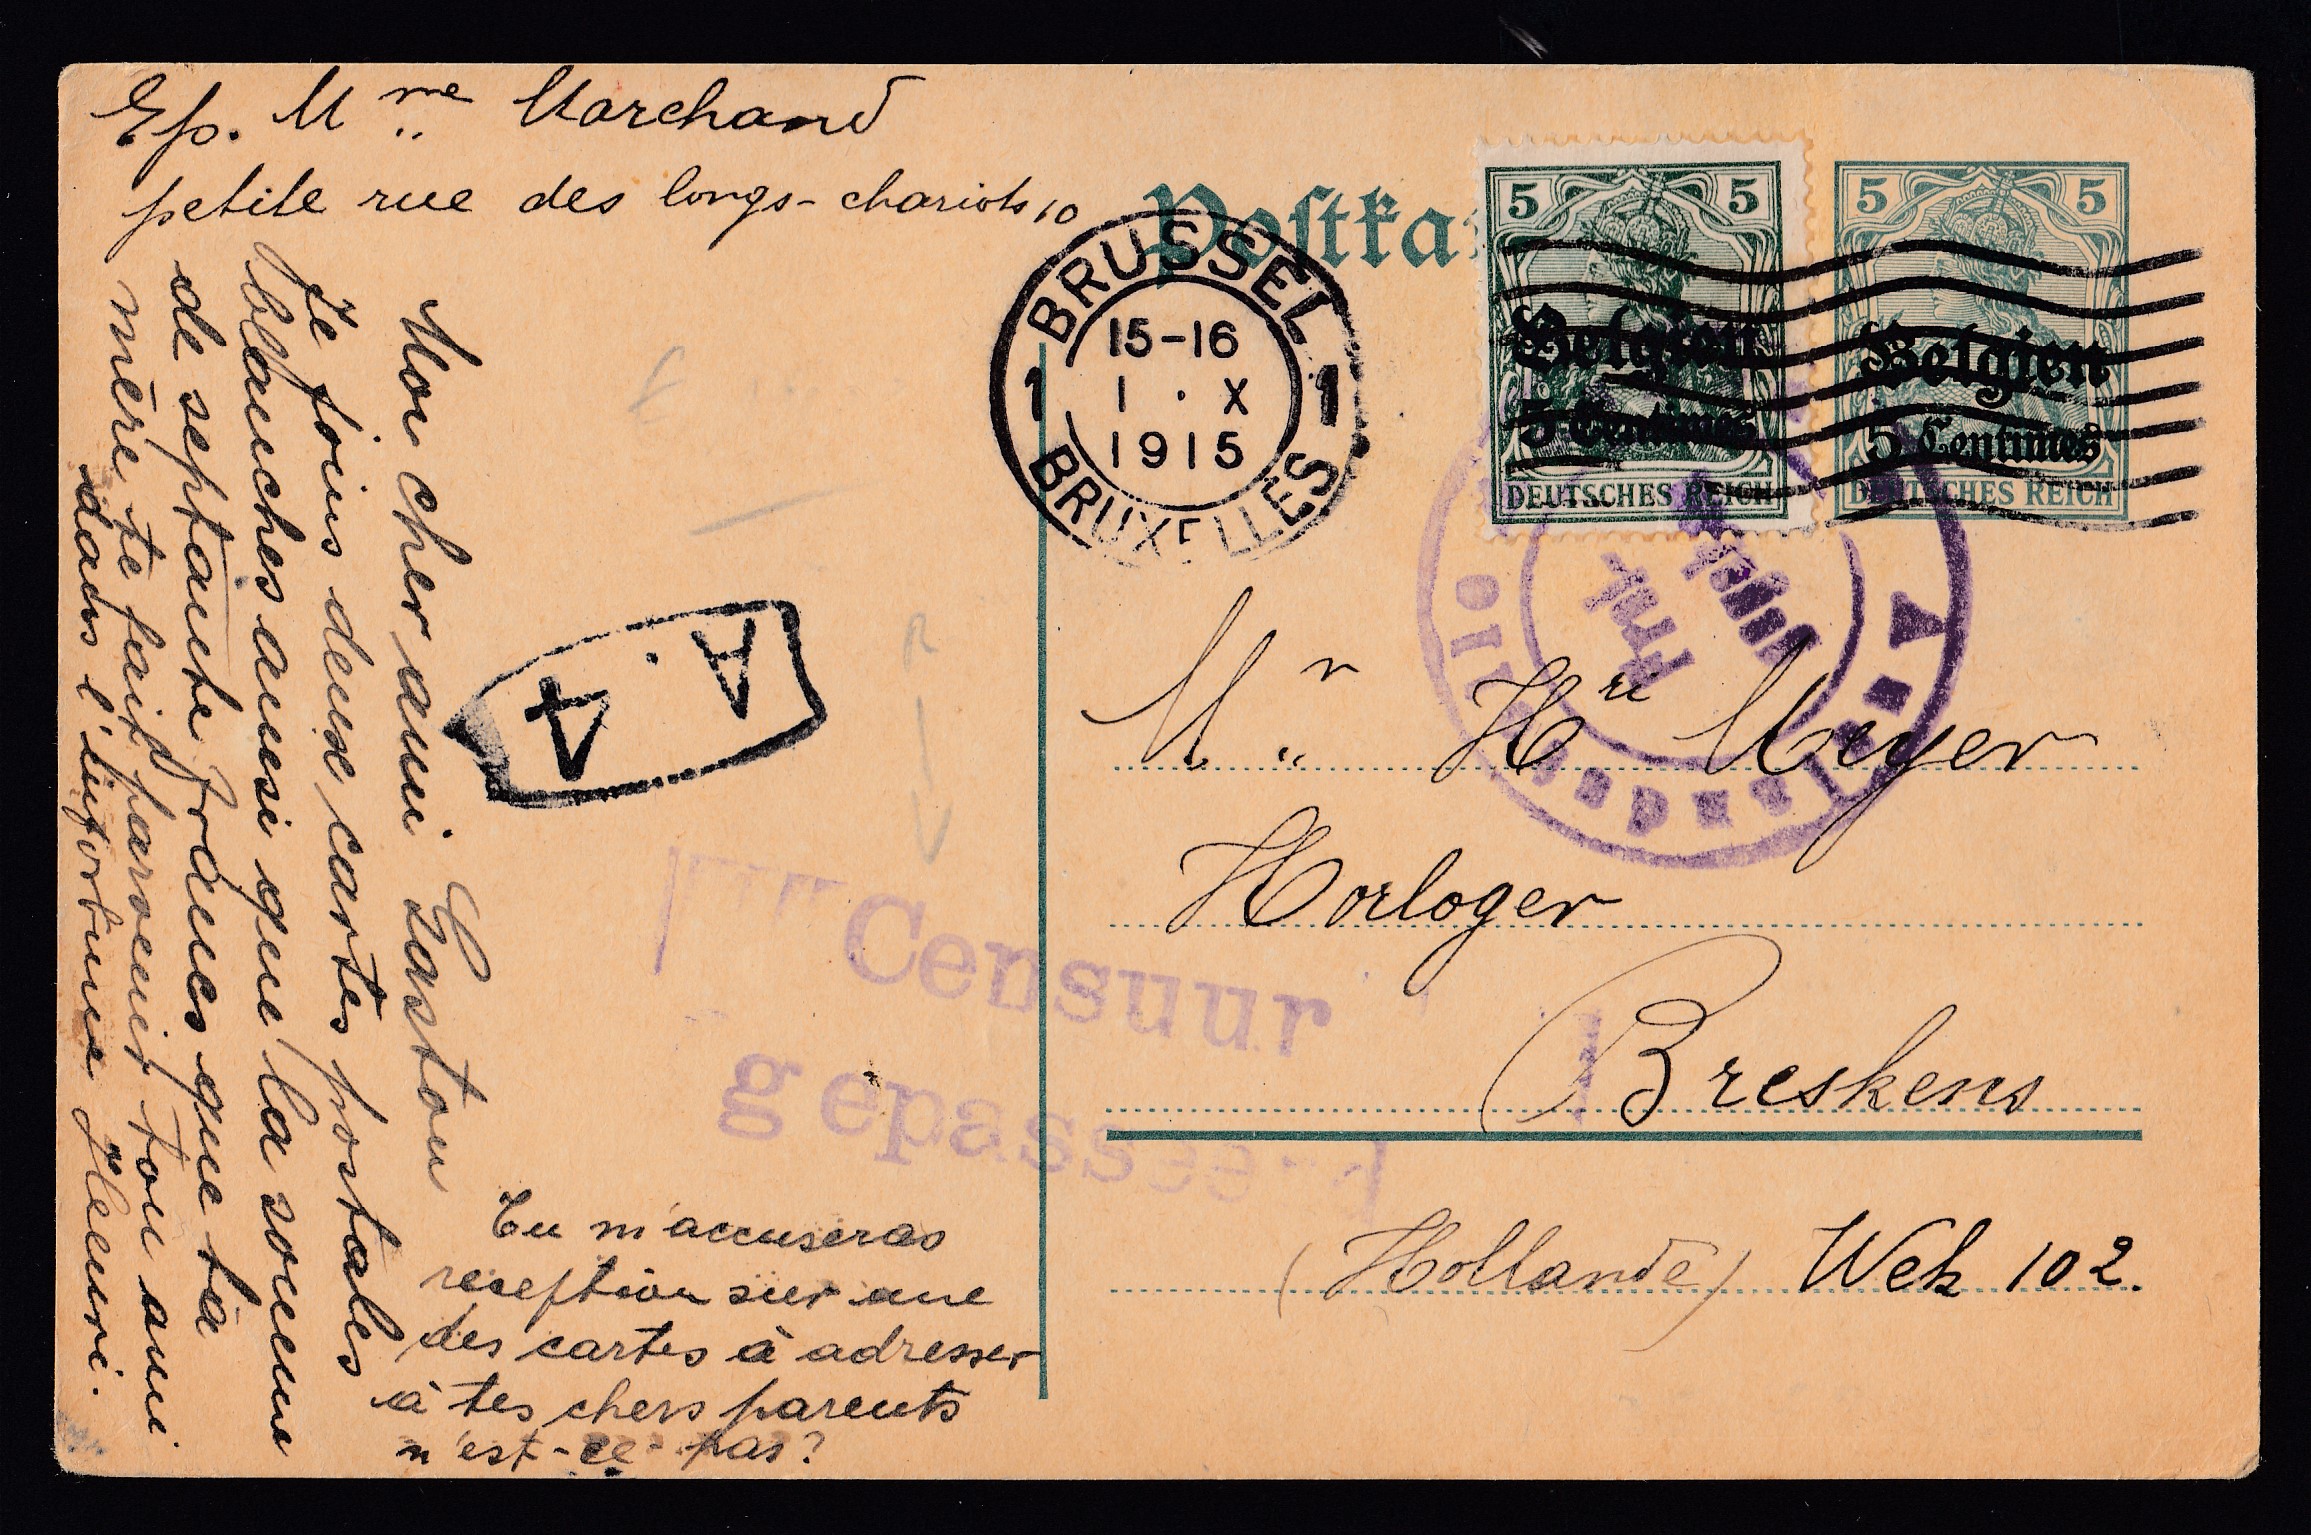 Ep. Mme Marchand
petite rue des longs-chariots 10
Postka
5 5
Belgien
5 Centimes
DEUTSCHES REICH
5 5
Belgien
5 Centimes
DEUTSCHES REICH
BRUSSEL
15-16
1 · X
1915
1 1
BRUXELLES
A. 4
Mon cher ami Gaston
Je joins deux cartes postales
blanches ainsi que la somme
de septante francs que ta
mère te fait parvenir. Ton ami
dans l'infortune Henri.
Mr Hri Meyer
Horloger
Breskens
(Hollande) Wek 102.
Censuur
gepasseerd
Tu m'accuseras
reseption sur une
des cartes à adresser
à tes chers parents
n'est-ce-pas?